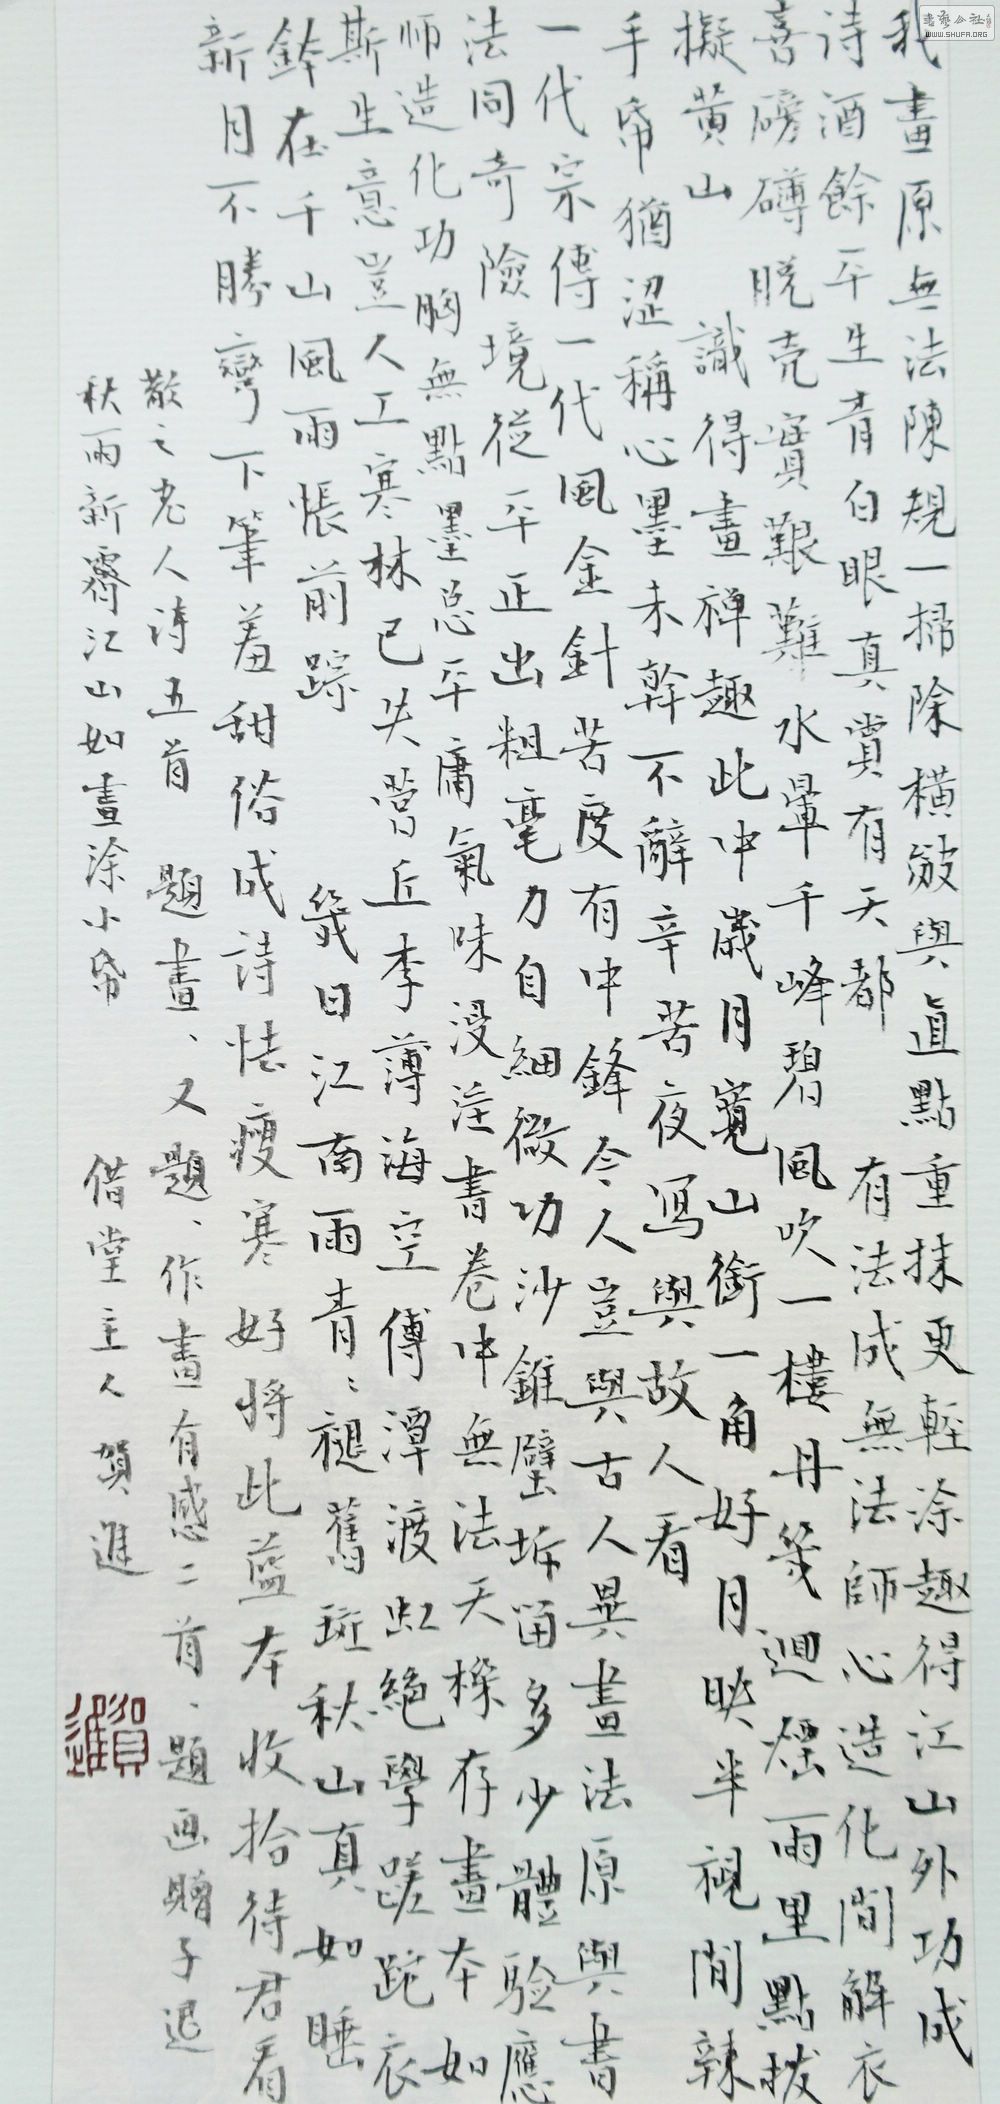 我畫原無法陳規一掃除橫皴與直點重抹更輕涂趣得江山外功成
诗酒餘平生青白眼真賞有天都 有法成無法師心造化間解衣
喜磅礴脱壳實艱難水暈千峰碧風吹一樓丹幾迴煙雨里點拨
擬黄山 識得畫禅趣此中歲月寬山銜一角好月映半視間辣
手帋猶涩稱心墨未幹不辭辛苦夜写與故人看
一代宗傅一代風金針苦度有中鋒今人豈與古人異畫法原與書
法同奇險境從平正出粗毫力自細微功沙錐壁坼留多少體验應
师造化功胸無點墨忌平庸氣味浸淫書卷中無法天機存畫本如
斯生意豈人工寒林已失營丘李薄海空傅潭渡虹絶學蹉跎衣
鉢在千山風雨悵前踪 幾日江南雨青青褪舊斑秋山真如睡
新月不勝彎下筆羞甜俗成詩怯瘦寒好将此蓝本收拾待君看
散之老人诗五首 题畫、又题、作畫有感二首、题画赠子退
秋雨新霽江山如畫涂小帋 借堂主人 賀進
賀進
書藝公社
www.SHUFA.ORG